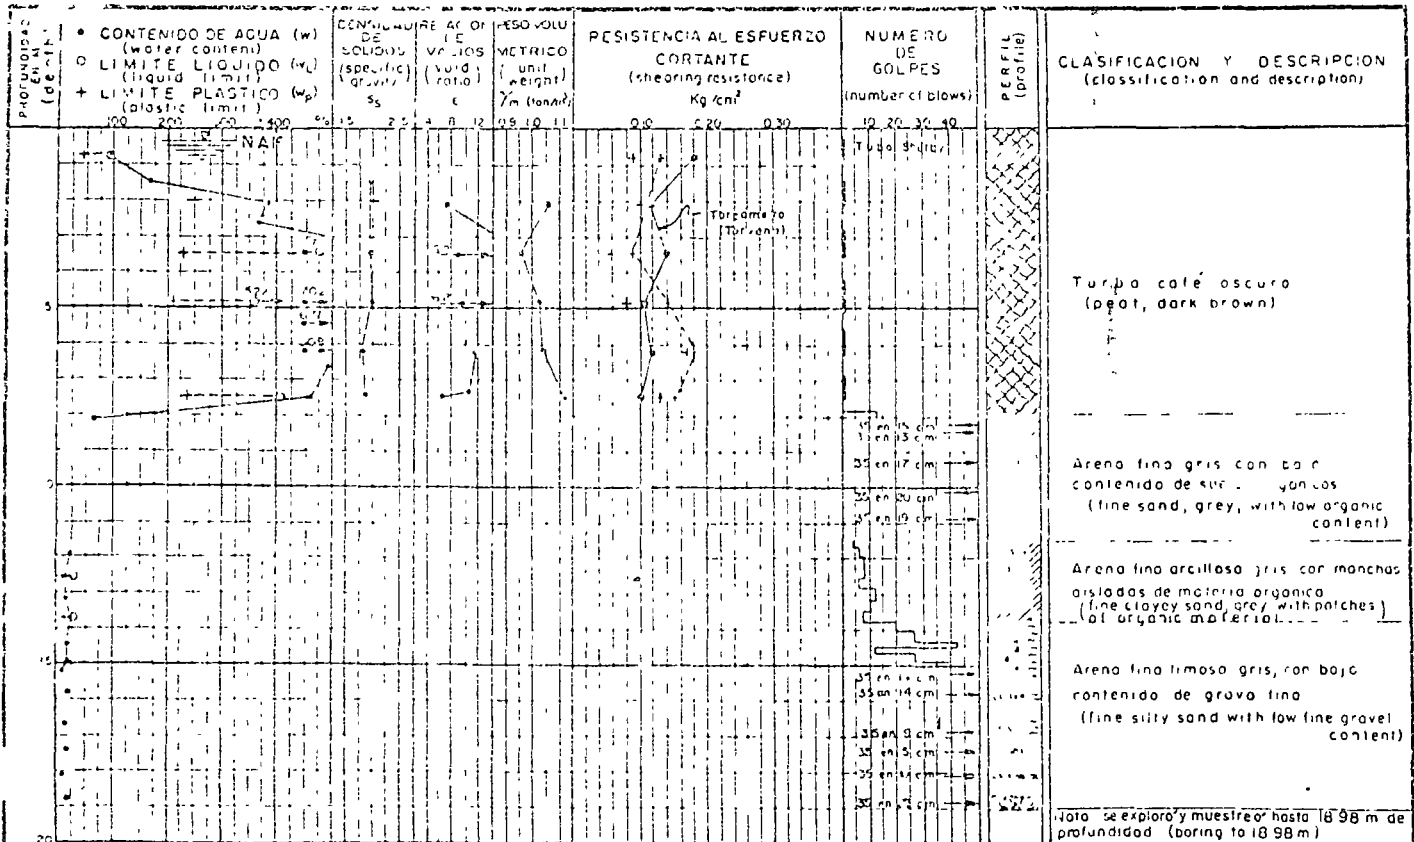 PROFUNDIDAD
EN M
(depth)
• CONTENIDO DE AGUA (w)
(water content)
○ LIMITE LIQUIDO (wL)
(liquid limit)
+ LIMITE PLASTICO (wp)
(plastic limit)
100 200 300 400 %
DENSIDAD
DE
SOLIDOS
(specific
gravity)
Ss
1.5 2.5
VACIOS
(void
ratio)
4 8 12
PESO VOLU
METRICO
unit
(weight)
γm (ton/m³)
0.9 1.0 1.1
RESISTENCIA AL ESFUERZO
CORTANTE
(shearing resistance)
Kg/cm²
0.10 0.20 0.30
NUMERO
DE
GOLPES
(number of blows)
10 20 30 40
PERFIL
(profile)
CLASIFICACION Y DESCRIPCION
(classification and description)
NAF
Tubo Shelby
Torcometro
(Torvane)
5
15
20
35 en 15 cm
en 13 cm
35 en 17 cm
35 en 20 cm
35 en 19 cm
35 en 14 cm
35 en 9 cm
35 en 5 cm
Turba café oscuro
(peat, dark brown)
Arena fina gris con bajo
contenido de
(fine sand, grey, with low organic
content)
Arena fina arcillosa gris con manchas
aisladas de materia organica
(fine clayey sand, grey with patches)
of organic material
Arena fina limosa gris, con bajo
contenido de grava fina
(fine silty sand with low fine gravel
content)
Nota se exploro y muestreo hasta 18 98 m de
profundidad (boring to 18 98 m)